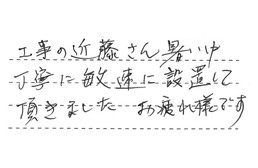 工事の近藤さん暑い中
丁寧に敏速に設置して
頂きました お疲れ様です